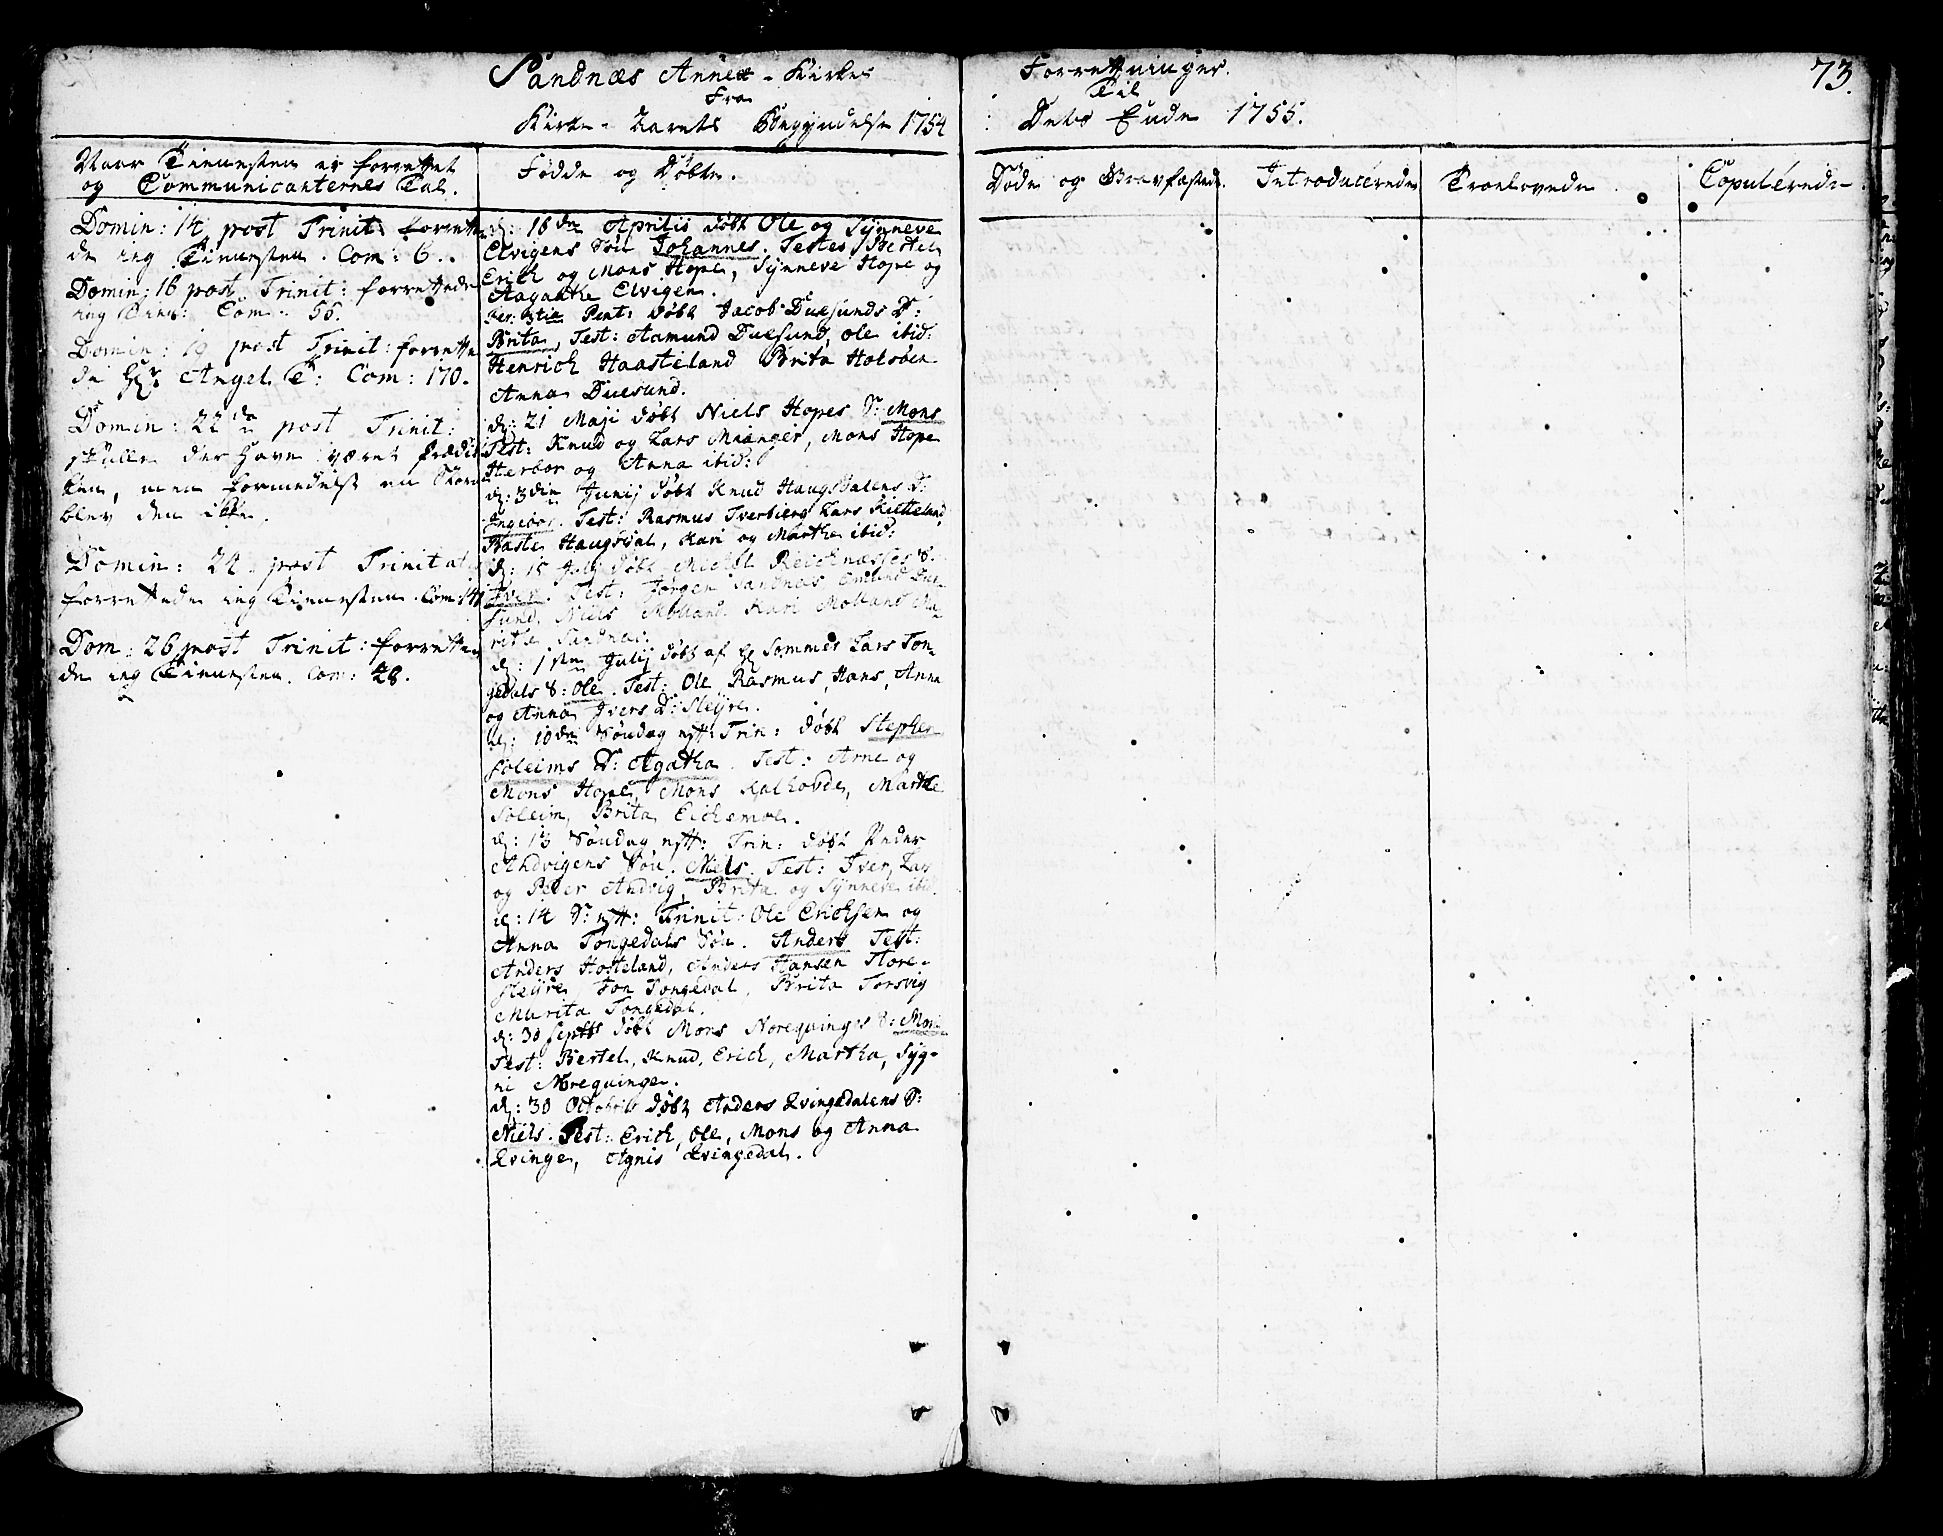 Sandnæs Annex-Kirkes Forrettninger. 73.
Fra Til
Kirke-Aarets Begyndelse 1754 Dets Ende 1755.
Naar Tienesten er forrettet
og Communicanternes Tal.
Domin: 14 post Trinit: forrette
de ieg Tienesten. Com: 6.
Domin: 16 post Trinit: forrettede
ieg Tien: Com: 56.
Domin: 19 post Trinit: forrette
de Hr Angel T: Com: 170.
Domin: 22de post Trinit:
skulle der have været prædi
ken, men formedelst en Storm
blev den ikke.
Domin: 24 post Trinitat
forrettede ieg Tienesten. Com 141
Dom: 26 post Trinit: forrette
de ieg Tienesten. Com: 48.
Fødde og Døbte.
d: 16de Aprilis døbt Ole og Synneve
Elvigens Søn Johannes. Testes Bertel
Erich og Mons Hope, Synneve Hope og
Aagaathe Elvigen.
Fer: 3tia Pent: døbt Jacob Duesunds D:
Brita, Test: Aamund Duesund, Ole ibid:
Henrich Haasteland Brita Holsøen
Anna Duesund.
d: 21 Maji døbt Niels Hopes S: Mons
Test: Knud og Lars Mianger, Mons Hope
Herbor og Anna ibid:
d: 3die Junij døbt Knud Haugsdalens D:
Ingebor. Test: Rasmus Tverbierg Lars Kietteland
Baste Haugsdal, Kari og Marthe ibid:
d: 15 July døbt Michel Reichnæsses S:
Iver. Test: Jørgen Sandnæs Emund Due-
sund, Niels Molland Kari Mollans Ma-
rithe Sandnæs.
d: 1ste July døbt af H Sommer Lars Ton-
gedals S: Ole. Test: Ole, Rasmus, Hans, Anna
og Anna Ivers D: Sleyre.
d: 10de Søndag eftt: Trin: døbt Stephen
Soleims D: Agatha. Test: Arne og
Mons Hope, Mons Kalhovde, Marthe
Soleim, Brita Eichemoe.
d: 13 Søndag eftt: Trin: døbt Peder
Andvigens Søn. Niels. Test: Iver, Lars
og Peder Andvig, Brita og Synneve ibid
d: 14 S: eftt: Trinit: Ole Erichsen og
Anna Tongedals Søn. Anders Test:
Anders Hosteland, Anders Hansen Store-
sleyre, Jon Tongedal, Brita Torsvig
Marita Tongedal.
d: 30 Septbr døbt Mons Norequinges S: Mons
Test: Bertel, Knud, Erich, Martha, Syg-
ni Norequinge.
d: 30 Octobris døbt Anders Qvingedalens S:
Niels. Test: Erich, Ole, Mons og Anna
Qvinge, Agnis Qvingedal.
Døde og Gravfæstede. Introducerede Trolovede Copulerede